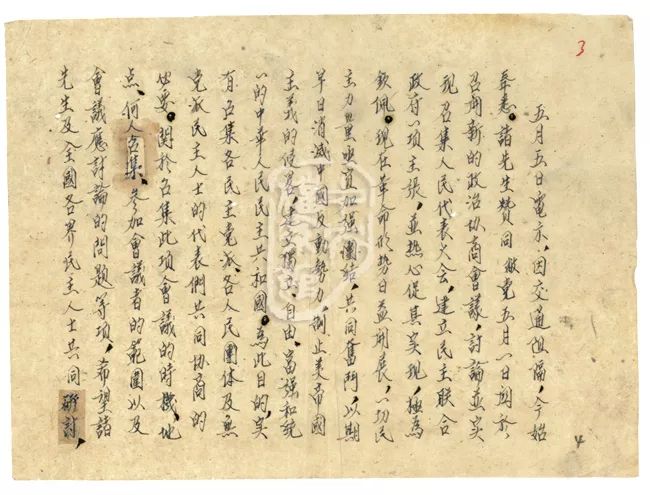 3
五月五日電示，因交通阻隔，今始
奉悉。諸先生贊同敝党五月一日関於
召開新的政治协商會議，討論並实
现召集人民代表大会，建立民主联合
政府一项主张，並热心促其实现，極為
钦佩。现在革命形势日益開展，一切民
主力量亟宜加强團結，共同奮鬥，以期
早日消滅中國反動勢力，制止美帝國
主義的侵略，建立獨立、自由、富强和统
一的中華人民民主共和國。為此目的，实
有召集各民主党派、各人民團体及無
党派民主人士的代表們共同协商的
必要。関於召集此项會議的時機、地
点、何人召集、参加會議者的範圍以及
會議應討論的問題等项，希望諸
先生及全國各界民主人士共同研討，
4